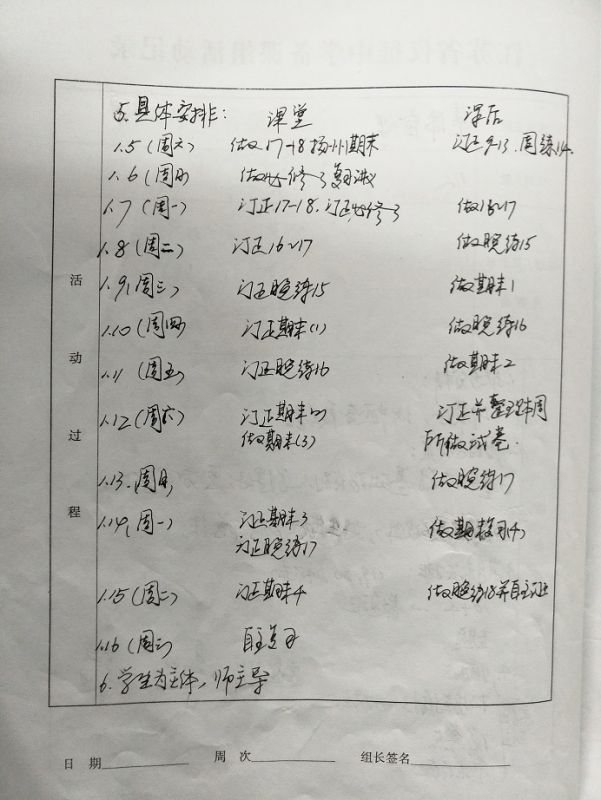 5. 具体安排： 课堂 课后
1.5（周六） 做17-18扬州期末 订正 13、周练14
1.6（周日） 做必修3复习
1.7（周一） 订正17-18、订正必修3 做16~17
1.8（周二） 订正16~17 做晚练15
1.9（周三） 订正晚练15 做期末1
1.10（周四） 订正期末(1) 做晚练16
1.11（周五） 订正晚练16 做期末2
1.12（周六） 订正期末(2) 订正并整理本周
做期末(3) 所做试卷.
1.13.周日 做晚练17
1.14（周一） 订正期末3 做期末复习(4)
订正晚练17
1.15（周二） 订正期末4 做晚练18并自主订正
1.16（周三） 自主复习
6. 学生为主体，师主导
活动过程
日 期 周 次 组长签名